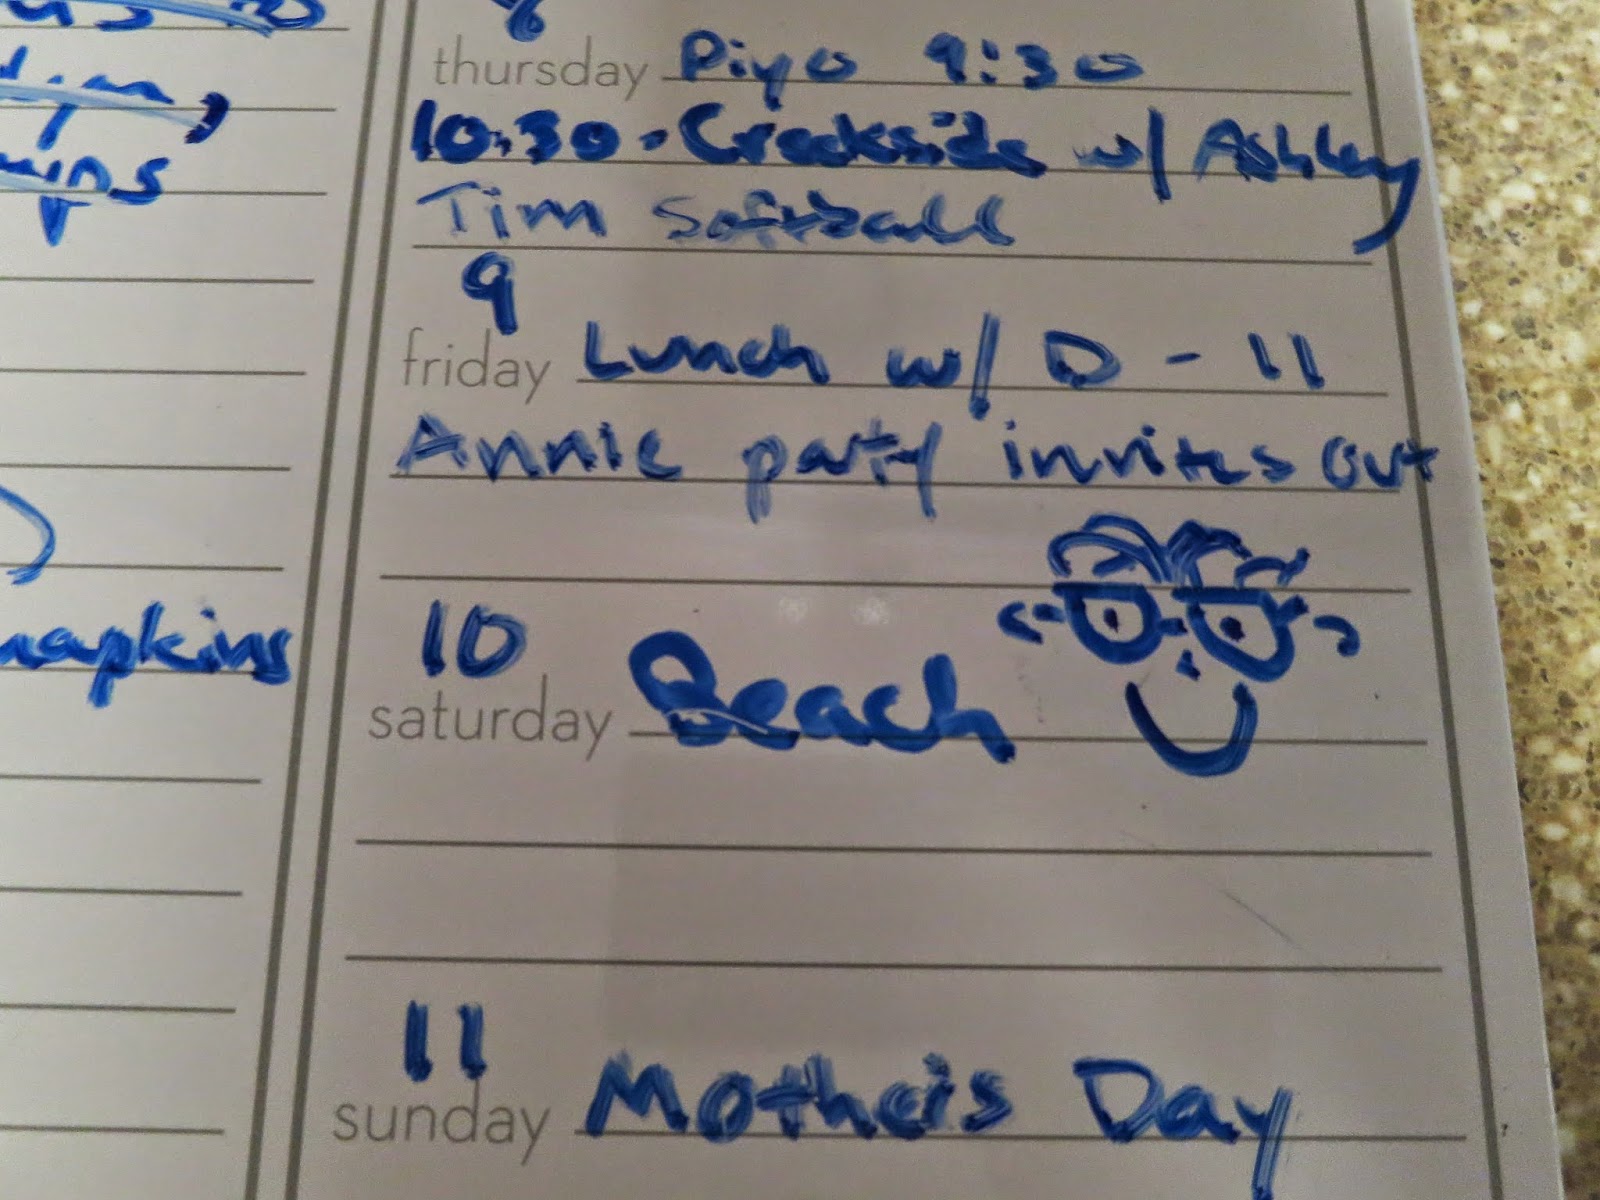 8
thursday Piyo 9:30
10:30 - Creekside w/ Ashley
Tim Softball
9
friday Lunch w/ D - 11
Annie party invites out
10
saturday Beach
11
sunday Mother's Day
napkins